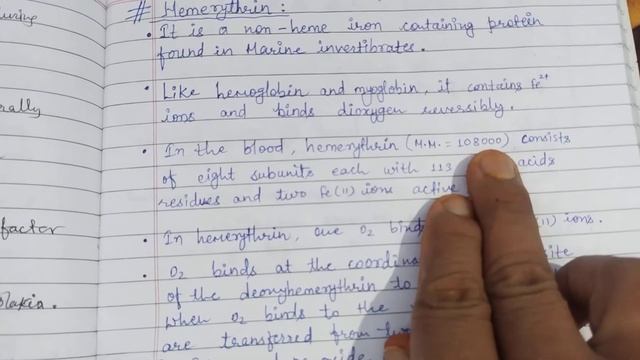 # Hemerythrin :
• It is a non-heme iron containing protein
found in Marine investibrates.
• Like hemoglobin and myoglobin, it contains Fe2+
ions and binds dioxygen reversibly.
• In the blood, hemerythrin (M.M. = 108000) consists
of eight subunits each with 113 acids
residues and two Fe(II) ions active
• In hemerythrin, one O2 bind (II) ions.
• O2 binds at the coordina ite
of the deoxyhemerythrin to
when O2 binds to the
are transferred from
rally
factor